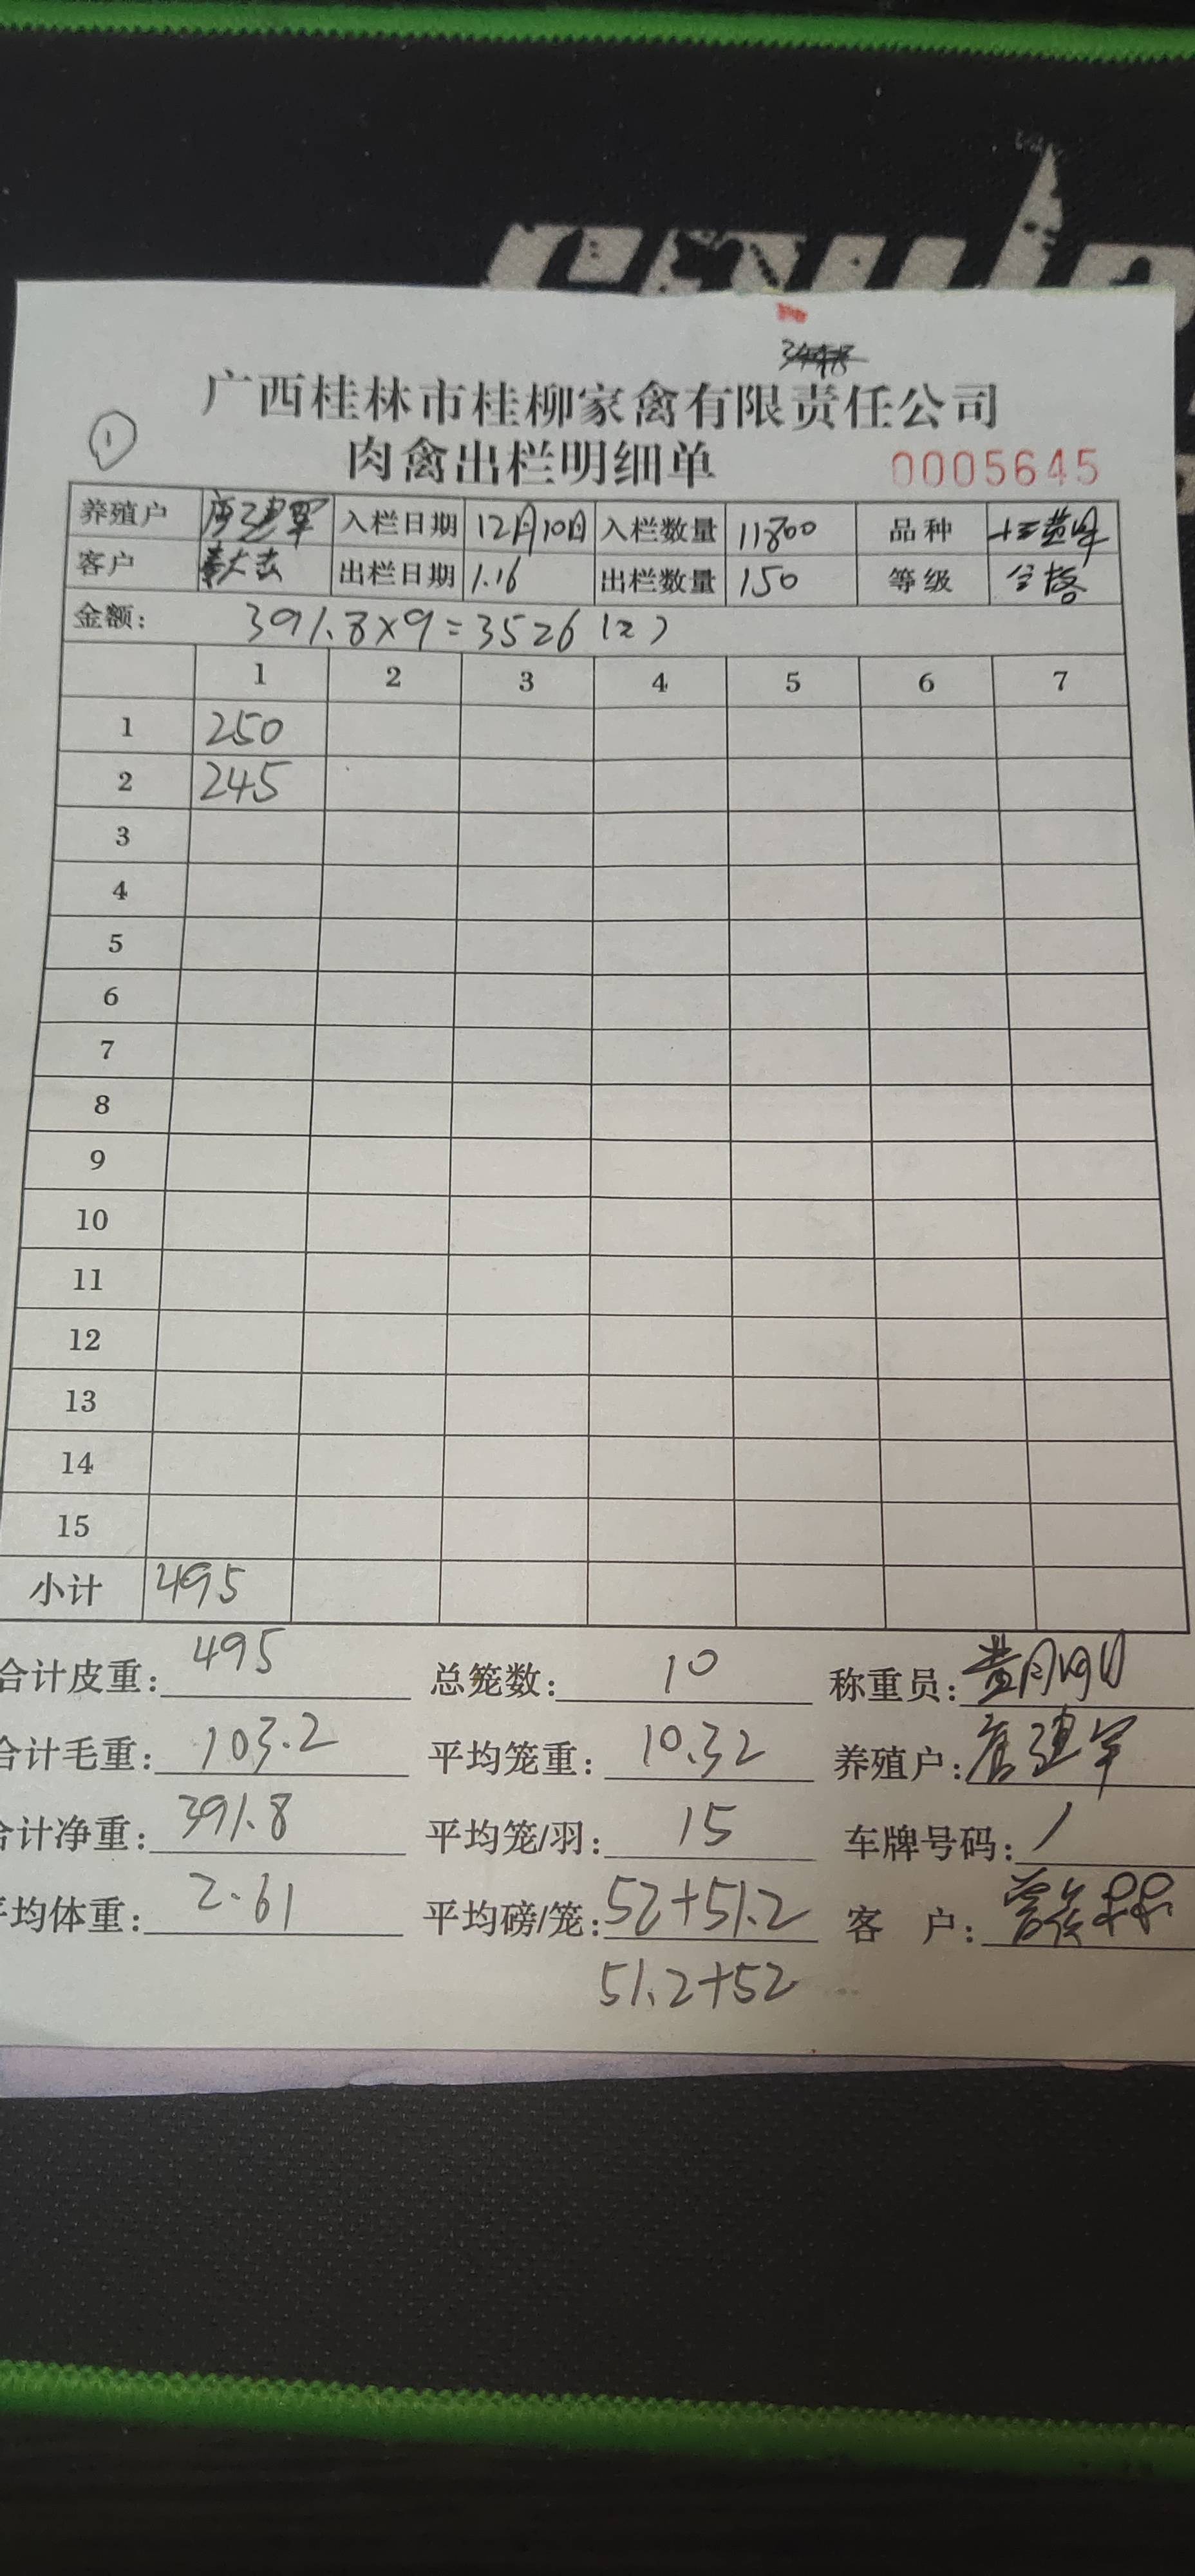 广西桂林市桂柳家禽有限责任公司
① 肉禽出栏明细单 0005645
养殖户 唐建军 入栏日期 12月10日 入栏数量 11800 品种
客户 出栏日期 1.16 出栏数量 150 等级 合格
金额: 391.8×9=3526
1 2 3 4 5 6 7
1 250
2 245
3
4
5
6
7
8
9
10
11
12
13
14
15
小计 495
合计皮重: 495 总笼数: 10 称重员:
合计毛重: 103.2 平均笼重: 10.32 养殖户: 唐建军
合计净重: 391.8 平均笼/羽: 15 车牌号码: /
平均体重: 2.61 平均磅/笼: 52+51.2 客 户:
51.2+52